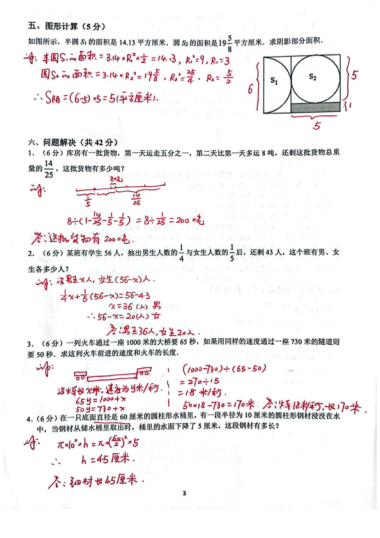 五、图形计算（5 分）
如图所示，半圆 S₁ 的面积是 14.13 平方厘米，圆 S₂ 的面积是 19 5/8 平方厘米，求阴影部分面积.
半圆S₁的面积=3.14×R₁²×1/2=14.13, R₁²=9, R₁=3
圆S₂的面积=3.14×R₂²=19 5/8, R₂²=25/4, R₂=5/2
∴S阴=(6-5)×5=5(平方厘米).
6 S₁ S₂ 5 1
5
六、问题解决（共 42 分）
1. （6 分）库房有一批货物，第一天运走五分之一，第二天比第一天多运 8 吨，还剩这批货物总重
量的 14/25，这批货物有多少吨？
1/5 14/25
8÷(1-14/25-1/5-1/5)=8÷1/25=200吨
答:这批货物有200吨.
2. （6 分）某班有学生 56 人，抽出男生人数的 1/4 与女生人数的 1/5 后，还剩 43 人，这个班有男、女
生各多少人？
设男生x人,女生(56-x)人.
1/4x+1/5(56-x)=56-43
x=36(人)男
∴56-x=20(人)女
答:男生36人,女生20人.
3. （6 分）一列火车通过一座 1000 米的大桥要 65 秒，如果用同样的速度通过一座 730 米的隧道则
要 50 秒．求这列火车前进的速度和火车的长度．
(1000-730)÷(65-50)
=270÷15
=18米/秒
设火车长x米,速度为y米/秒.
65y=1000+x
50y=730+x
50×18-730=170米 答:火车18米/秒,长170米.
4. （6 分）在一只底面直径是 60 厘米的圆柱形水桶里，有一段半径为 10 厘米的圆柱形钢材浸没在水
中，当钢材从储水桶里取出时，桶里的水面下降了 5 厘米，这段钢材有多长？
π×10²×h=π×(60/2)²×5
∴ h=45厘米.
答:钢材长45厘米.
3